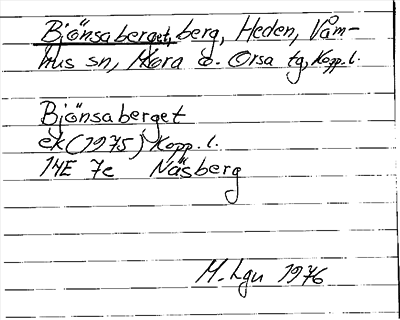 Bjönsaberget, berg, Heden, Våm-
hus sn, Mora o. Orsa tg, Kopp. l.
Bjönsaberget
ek (1975) Kopp. l.
14E 7e Näsberg
M. Lgn 1976